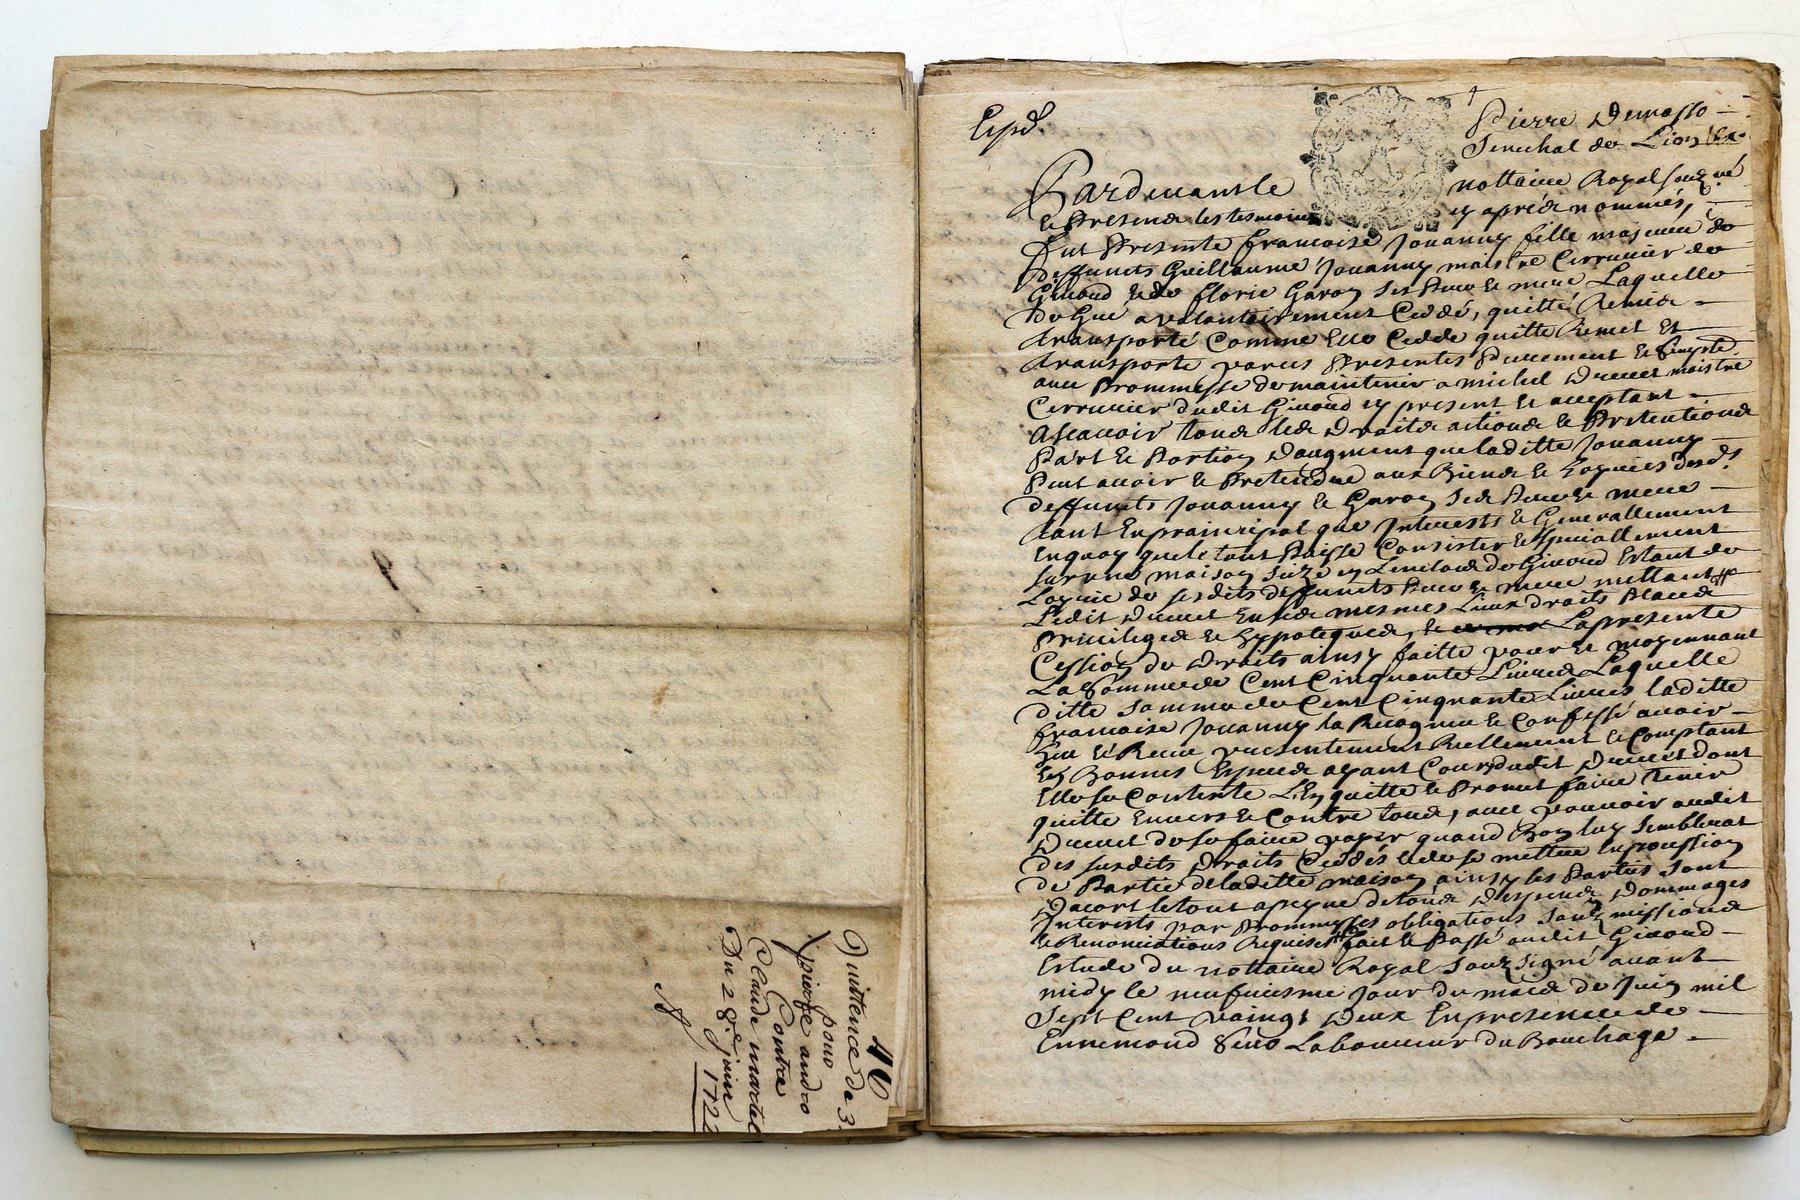 40
Quittence de 3
pour
pierre andro
Contre
Claude martel
Du 28e juin
1722
Expd.
Pierre Demasso
Senechal de Lion
Pardevant le nottaire Royal souz.né
et Presence les tesmoins cy aprés nommés,
Fut Presente francoise Jouanny fille majeure de
deffunts Guillaume Jouanny maistre Cerrurier de
Givord et de florie Garon ses Pere et mere Laquelle
de Gré a volontairement Ceddé, quitté Remis
transporté Comme Elle Cedde quitte Remet Et
transporte par ces Presentes Purement et simplet.
avec Prommesse de maintenir a michel Drevet maistre
Cerrurier dudit Givord cy present et acceptant
Ascavoir tous les Droits actions et Pretentions
Part et Portion daugment que laditte Jouanny
Peut avoir et Pretendre aux Biens et hoyries desd.
deffunts Jouanny et Garon ses Pere et mere
tant En principal que Interests et Generallement
En quoy que le tout Puisse Consister et speciallement
sur une maison size en Lenclos de Givord Estant de
Loyrie de sesdits deffunts Pere et mere mettant
Ledit Drevet En ses mesmes Lieux droits Places
Privileges et hypoteques, La presente
Cession de Droits ainsy faitte pour et moyennant
La Somme de Cent Cinquante Livres Laquelle
ditte somme de Cent Cinquante Livres laditte
francoise Jouanny la Recogneu et Confessé avoir
Heu et Receu presentement Reellement et Comptant
En Bonnes Especes ayant Cour dudit Drevet dont
Elle se Contente L'En quitte et Promet faire tenir
quitte Envers et Contre tous, avec pouvoir audit
Drevet de se faire payer quand Bon luy semblerat
des susdits Droits Ceddés et de se mettre En possession
de Partie de laditte maison ainsy les Parties sont
Dacort le tout a peyne de tous Despens Dommages
Interests par Prommesses obligations souzmissions
et Renonciations Requises fait et Passé audit Givord
Estude du nottaire Royal Souzsigné avant
midy le neufviesme jour du mois de Juin mil
Sept Cent vaingt Deux En presence de
Ennemond Laboureur du Bouchage